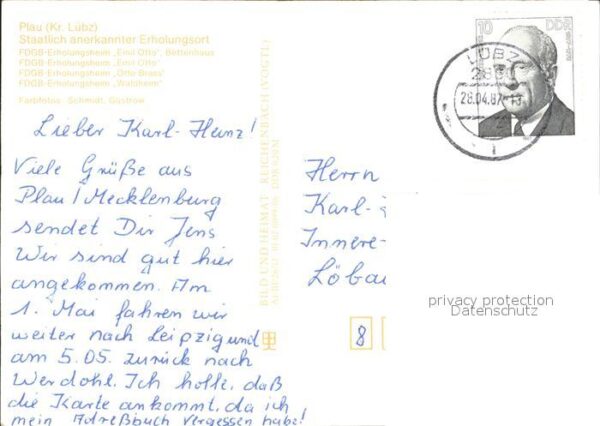 Plau (Kr. Lübz)
Staatlich anerkannter Erholungsort
FDGB-Erholungsheim „Emil Otto“, Bettenhaus
FDGB-Erholungsheim „Emil Otto“
FDGB-Erholungsheim „Otto Brass“
FDGB-Erholungsheim „Waldheim“
Farbfotos: Schmidt, Güstrow
10 DDR
LÜBZ
28.04.87
Lieber Karl-Heinz!
Viele Grüße aus
Plau/Mecklenburg
sendet Dir Jens
Wir sind gut hier
angekommen. Am
1. Mai fahren wir
weiter nach Leipzig und
am 5.05. zurück nach
Werdohl. Ich hoffe, daß
die Karte ankommt, da ich
mein Adreßbuch vergessen habe!
BILD UND HEIMAT REICHENBACH (VOGTL)
Herrn
Karl-
Innere-
Löbau
8
privacy protection
Datenschutz